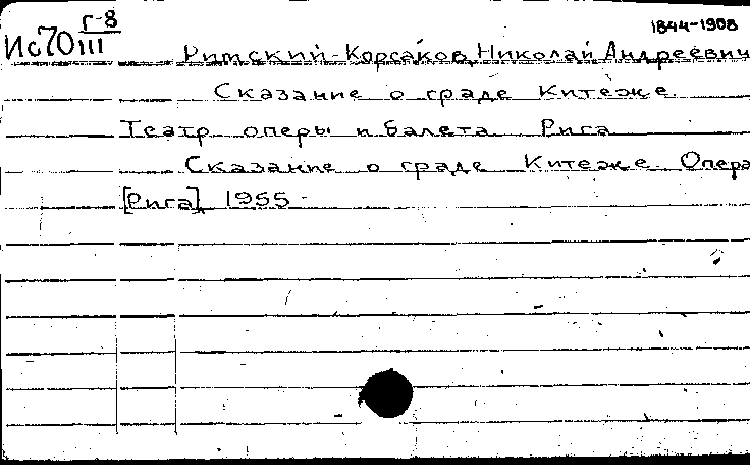 Г-8
Ис70 III
1844-1908
Римский-Корсаков, Николай Андреевич
Сказание о граде Китеже.
Театр оперы и балета. Рига
Сказание о граде Китеже. Опера
[Рига], 1955